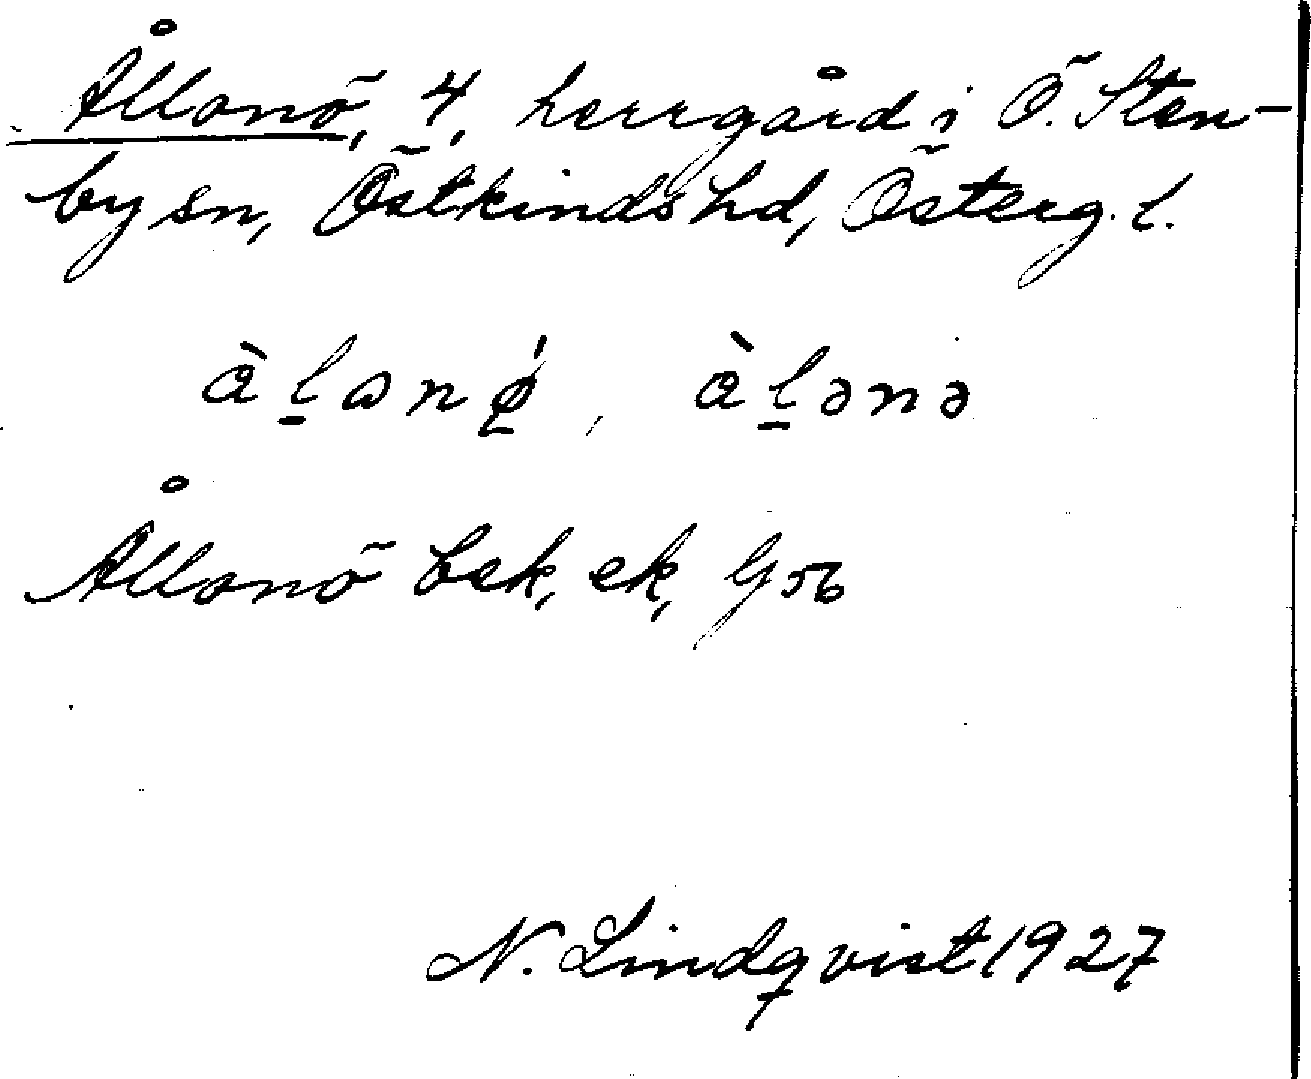 Ållonö, 4, herrgård i Ö. Sten-
by sn, Östkinds hd, Österg. l.
àl̠ɷnǿ̠, àl̠ənə
Ållonö bek, ek, G 56
N. Lindqvist 1927